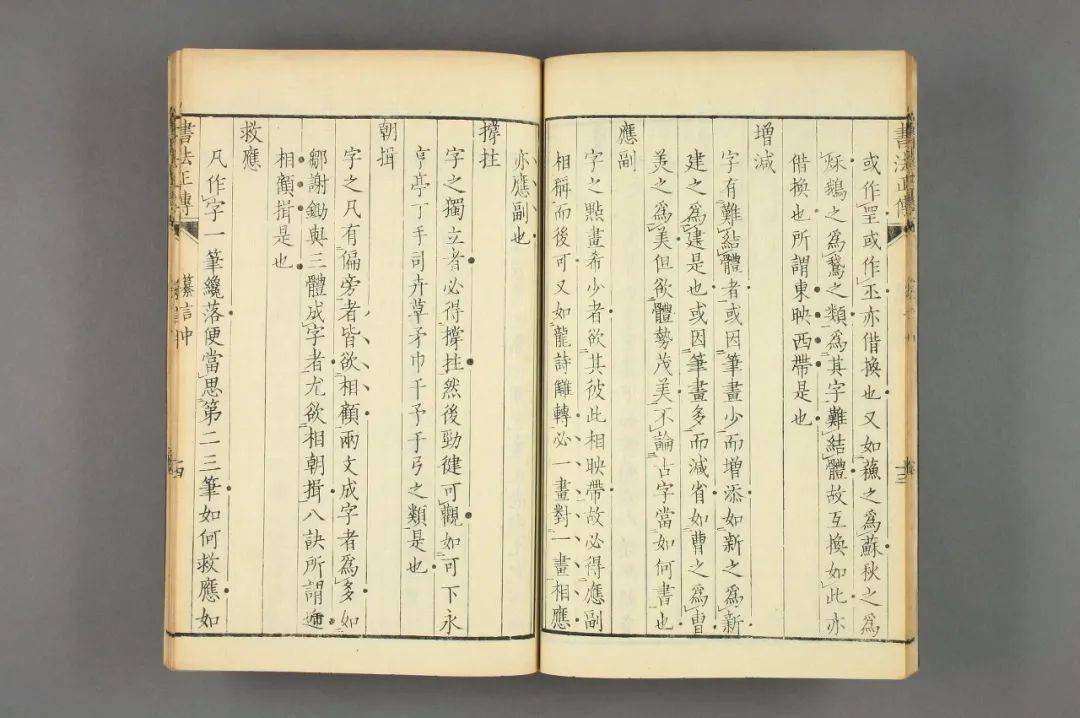 書法正傳
或作𦊆或作丕亦借換也又如蘓之為蘇秋之為
秌鵝之為鵞之類為其字難結體故互換如此亦
借換也所謂東映西帶是也
增減
字有難結體者或因筆畫少而增添如新之為新
建之為建是也或因筆畫多而減省如曹之為曺
美之為羙但欲體勢茂美不論古字當如何書也
應副
字之點畫希少者欲其彼此相映帶故必得應副
相稱而後可又如龍詩讎轉必一畫對一畫相應
亦應副也
撐拄
字之獨立者必得撐拄然後勁健可觀如可下永
亨亭丁手司卉草矛巾干予于弓之類是也
朝揖
字之凡有偏旁者皆欲相顧兩文成字者為多如
鄒謝鋤與三體成字者尤欲相朝揖八訣所謂
相顧揖是也
救應
凡作字一筆纔落便當思第二三筆如何救應如
書法正傳
纂言中
十四